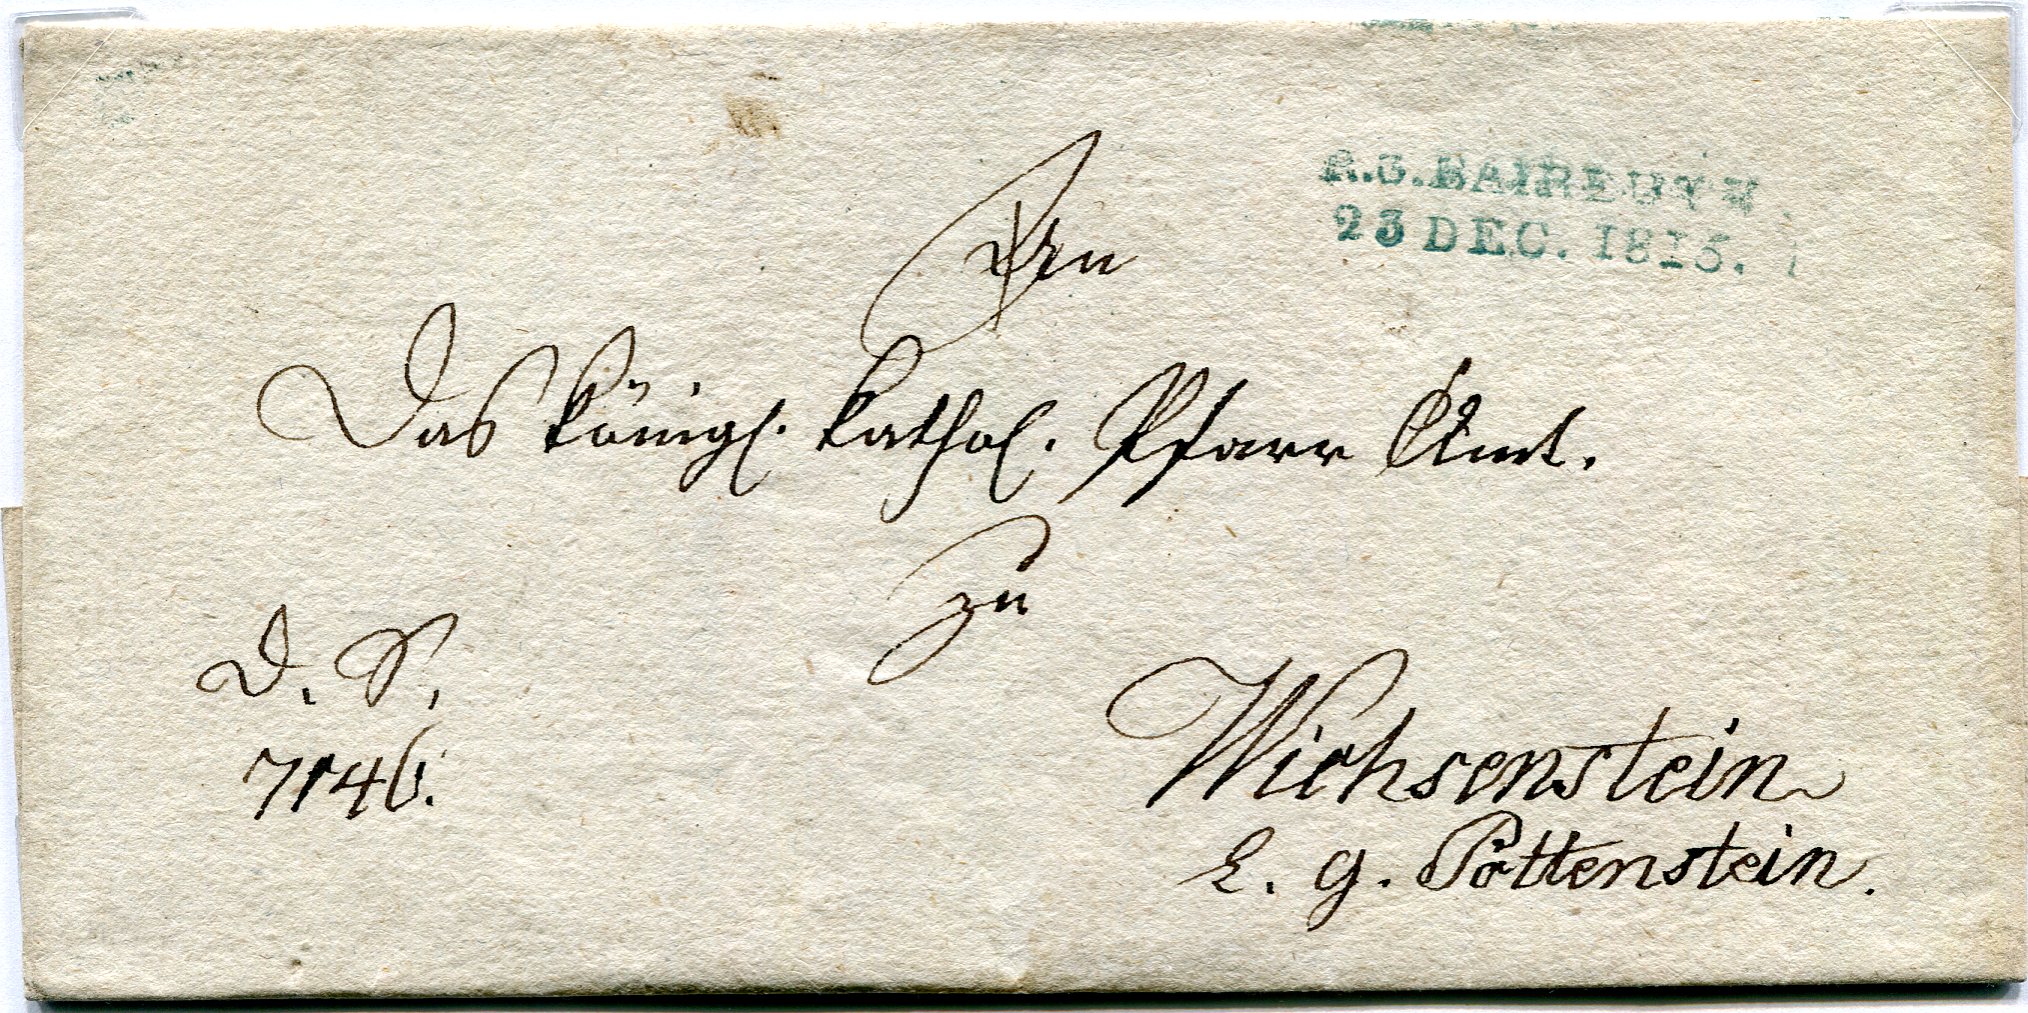 R.3.BAIREUTH.
23 DEC. 1815.
An
Das königl. kathol. Pfarr Amt.
zu
D. S.
7146.
Wichsenstein
L. g. Pottenstein.